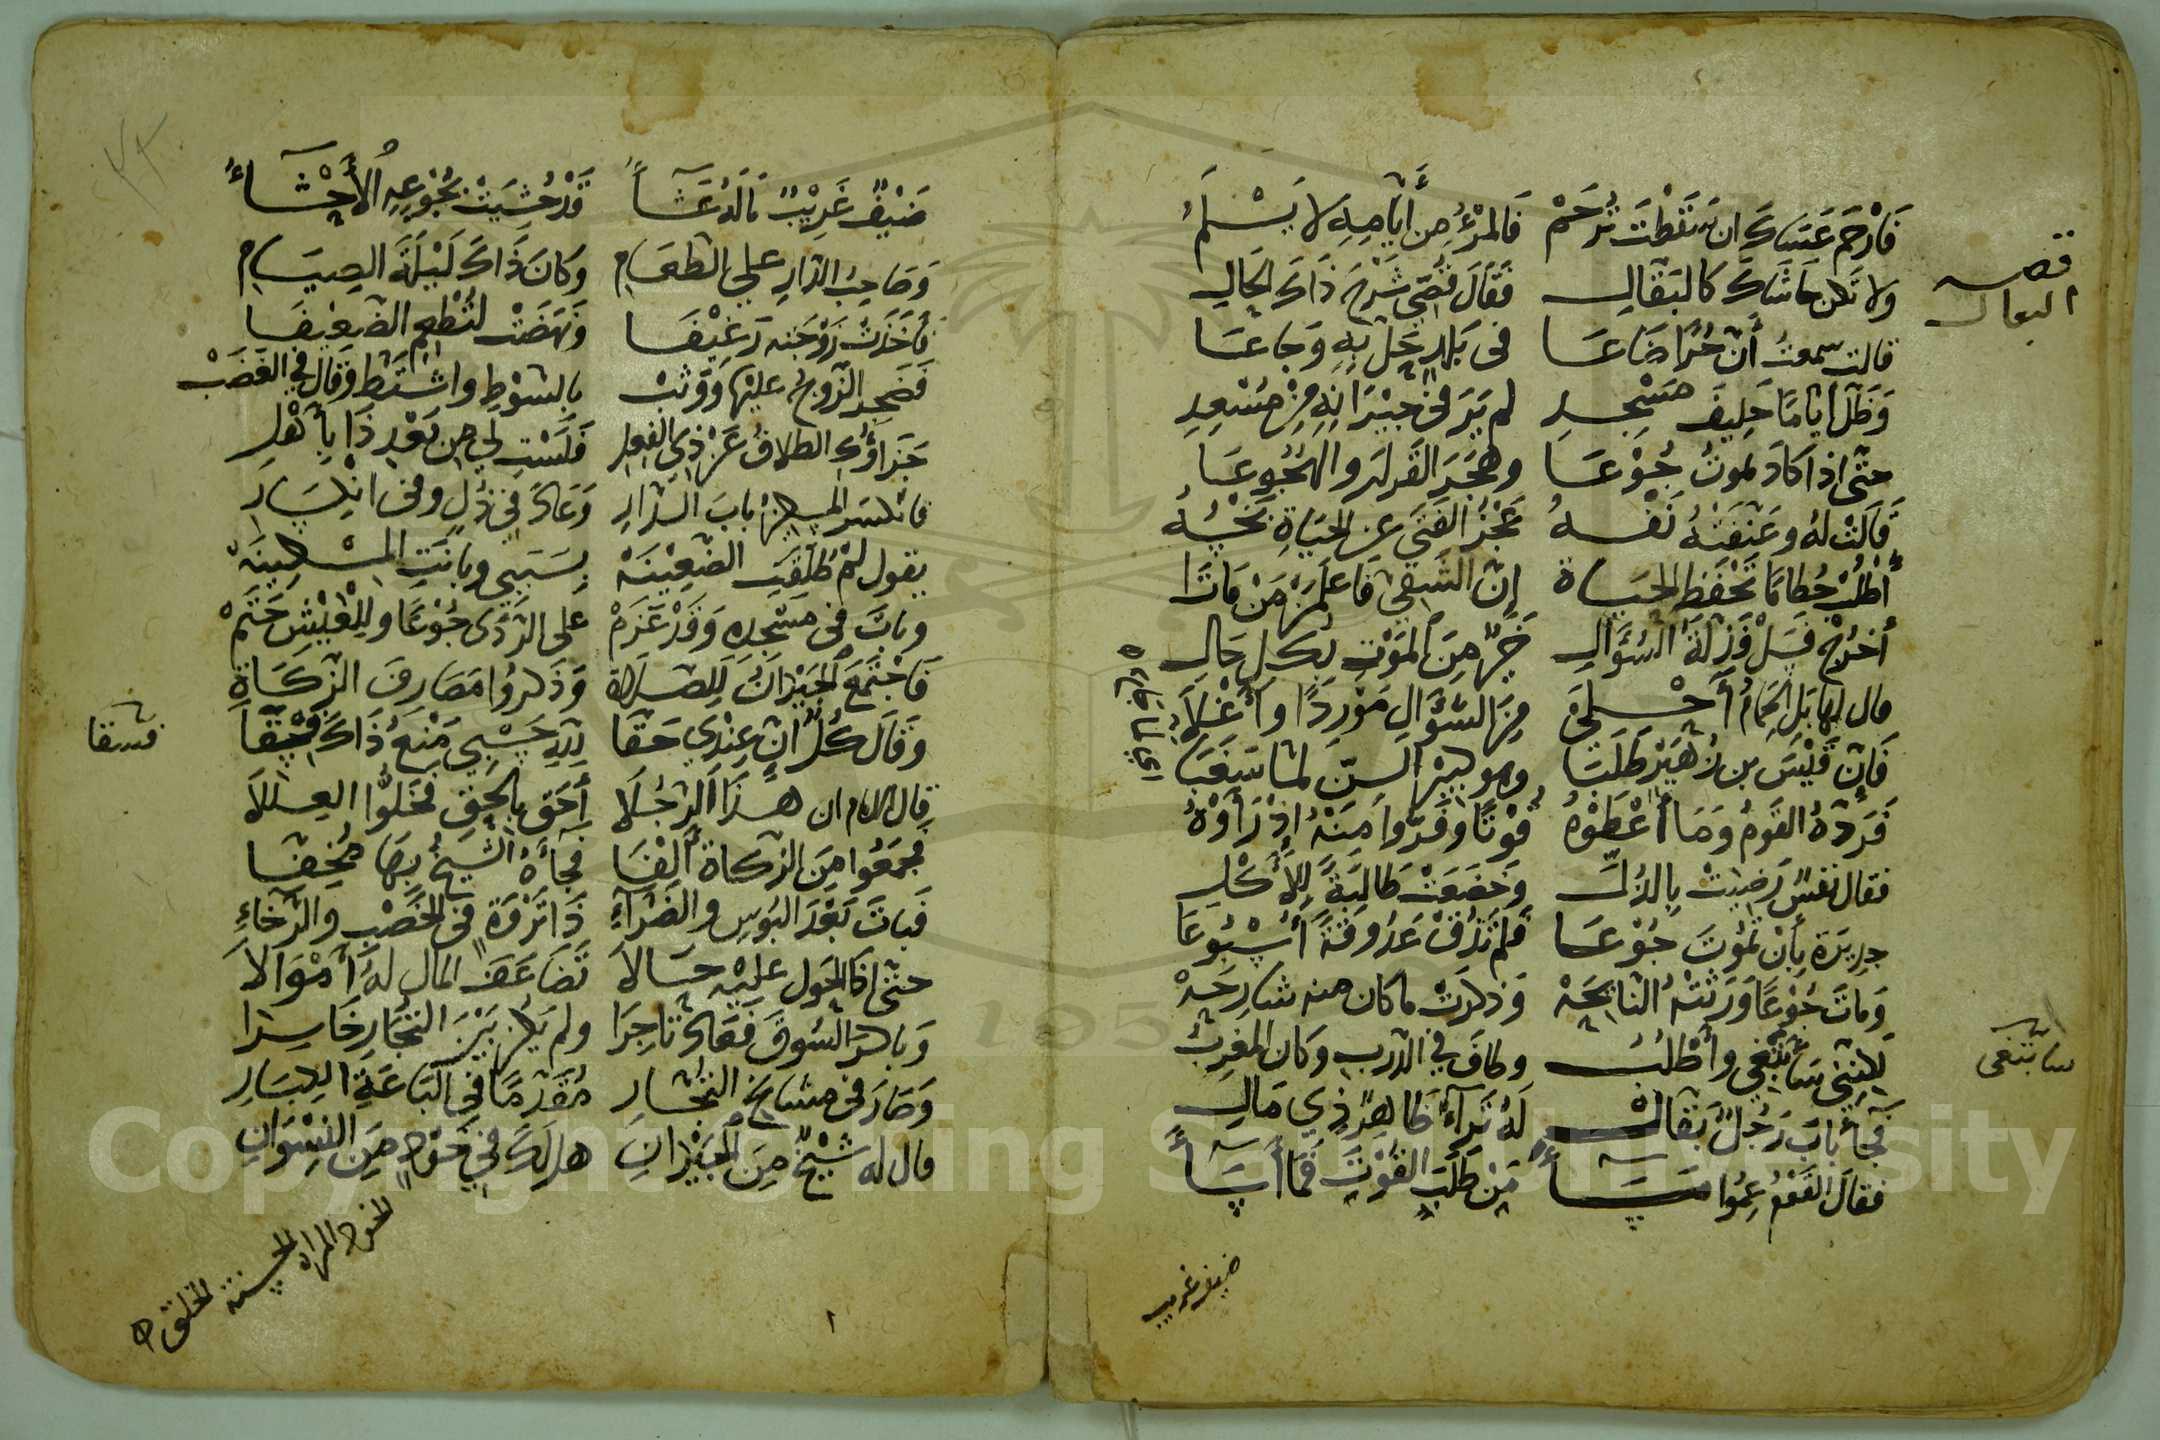 فَارْحَم عَسَاكَ ان سَقَطْتَ تُرحَمْ فَالمَرْءُ مِن أيَّامِهِ لا يَسْلَمُ
قصه البقال
ولا تكن حَاشَاكَ كالبَقَّالِ فَقَالَ قُصِّي شَرْحَ ذَاكَ الحَالِ
قالت سمعتُ أنّ حُرًّا ضَاعَا في بَلَدٍ حَلَّ بِهِ وَجَاعَا
وَظَلَّ أيامًا حَلِيفَ مَسْجِدِ لم يَرَ في جيْرَانِهِ مِنْ مُسْعِدِ
حتّى اذا كادَ يموتُ جُوْعَا وهَجَرَ القَرارَ والهُجُوعَا
قَالَتْ لهُ وعَنَّفَتْهُ نَفْسُهُ عَجْزُ الفَتَى عن الحَيَاةِ نَحْسُهُ
أُطْلُبْ حُطَامًا تَحْفَظِ الحَيَاةَ إنّ الشَقِيَّ فَاعْلَمَنْ مَنْ مَاتَا
أُخرُجْ فَسَلْ فَذِلّةُ السُؤَالِ خَيْرٌ مِنَ المَوْتِ بِكلِّ حَالِ
قال لها بَلِ الحِمَامُ أَحْلَى مِنَ السُّؤَالِ مَوْرِدًا وَأَغْلَا
فَإنّ قَيْسَ بن زُهَيْرٍ طَلَبَا وهو كبيرُ السنّ لمّا سَغَبَا
فَرَدّهُ القَومُ وَمَا أَعْطَوْهُ قُوْتًا وفَرُّوا مِنْهُ إذْ رَأَوْهُ
فقال نفسٌ رَضِيَتْ بِالذُّلّ وَخَضَعَتْ طَالِبَةً لِلأَكْلِ
جديرَة بأنْ تَمُوْتَ جُوْعَا فلم تَذُقْ عَذُوفَةً أُسْبُوعَا
وَماتَ جُوْعًا وَرَثَتْهُ النّائِحَهْ وَذكرَتْ ما كان منه شارحَهْ
لكنّنِي سَأَبْتَغِي وأَطْلُبُ وطافَ في الدّربِ وكان المغرِبُ
سابتغى
فَجَاْ بابَ رَجُلٍ بَقّالْ لَهُ ثَرَآءٌ ظَاهِرٌ ذي مَالِ
فقَالَ القَوْمُ عِمُوا مَسَآءً مَنْ طَلَبَ القُوْتَ فَمَا أَسَآءَ
ضيف غريب
ضَيْفٌ غَرِيْبٌ مَا لَهُ عَشَآءُ قَدْ حُشِيَتْ بجُوْعِهِ الأَحْشَآءُ
وَصَاحِبُ الدّارِ عليّ الطعَامِ وكَانَ ذَاكَ لَيْلَةَ الصِيَامِ
فأَخَذَتْ زَوْجَته رَغِيْفَا وَنَهَضَتْ لتُطْعِمَ الضّعِيفَا
فَضَجِرَ الزّوجُ عليها وَوَثَبْ بالسَّوْطِ واشْتَطَّ وقال في الغَضَبْ
جَزاؤُكِ الطلاقُ عَنْ ذي الفعل فَلَسْتِ لي من بَعْدِ ذَا بِأَهْلِ
فانكسَرَ المسكينُ بابَ الدّارِ وَعَادَ في ذُلٍّ وفي انْكِسَارِ
يقول لمْ طُلّقَتِ الضّعِيْنَهْ بسَبَبي وبَانَتِ المِسْكِينَهْ
وباتَ في مَسْجِدِهِ وَقَدْ عَزَمْ على الرّدَى جُوْعًا ولِلْعَيْشِ حَتَمْ
فَاجْتَمَعَ الجِيْرَانُ لِلصّلاةِ وَذَكرُوا مَصَارِفَ الزّكَاةِ
وَقَالَ كُلٌّ ان عِندِي حَقّا للهِ حَسْبِي مَنْعُ ذَاكَ فِسْقَا
فسقا
قال الامام ان هَذَا الرّجُلَا أَحَقّ بِالحَقِّ فَخَلُّوا العِللَا
فجَمَعُوا مِنَ الزكاةِ أَلْفَا فجَآءَهُ الشّيْخُ بهَا مُخِفّا
فَبَاتَ بَعْدَ البُؤسِ والضَرّآءِ ذَا ثَرْوَةٍ في الخصْبِ والرّخَاءِ
حتى اذا الحول عليْهِ حَالَا تَضَاعَفَ المال لهُ أَمْوَالَا
وَبَاكَرَ السُوقَ فَعَادَ تَاجِرَا ولم يَكُنْ بَيْنَ التُجّارِ خَاسِرَا
وَصَارَ في مشايخ التُجّارِ مُقَدّمًا في البَاعَةِ الكِبَارِ
قال له شَيْخٌ مِنَ الجِيْرَانِ هل لَكَ في خَوْدٍ مِنَ النِسْوَانِ
الخود المراه الحسنة الخلق